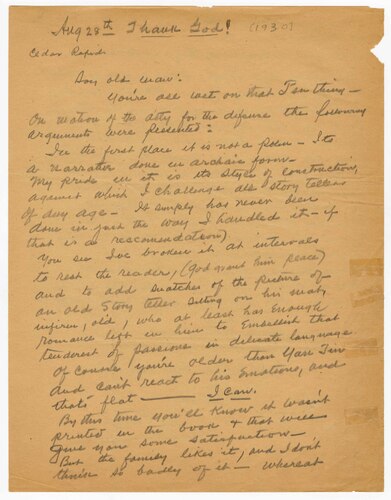 Aug 28th Thank God! (1930)
Cedar Rapids
Son old man:
You're all wet on that Poem thing –
On motion of the atty for the defense the following
arguments were presented:
In the first place it is not a poem – Its
a narrative done in archaic form –
My pride in it is its style of construction,
against which I challenge all story tellers
of any age – It simply has never been
done in just the way I handled it – if
that is a reccomendation).
You see I've broken it at intervals
to rest the readers, (God grant him peace)
and to add snatches of the picture of
an old Story teller sitting on his mat,
infirm, old, who at least has enough
romance left in him to embellish that
tenderest of passions in delicate language
Of course you're older than Yan Tin
and can't react to his emotions, and
that's flat —— I can.
By this time you'll know it wasn't
printed in the book & that will
give you some satisfaction –
But the family likes it, and I don't
think so badly of it – whereat